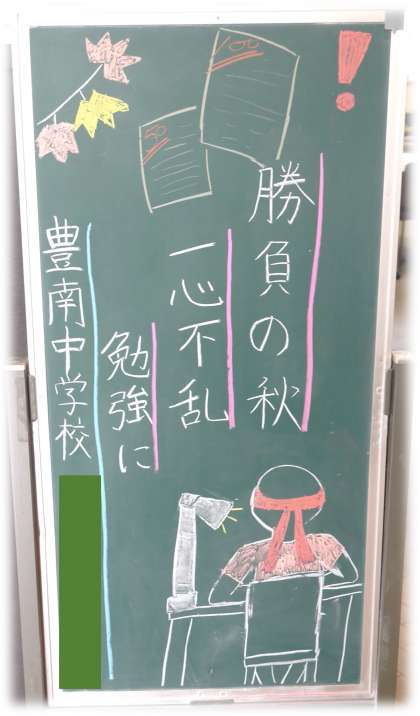 勝負の秋
一心不乱
勉強に
豊南中学校
!
100
50